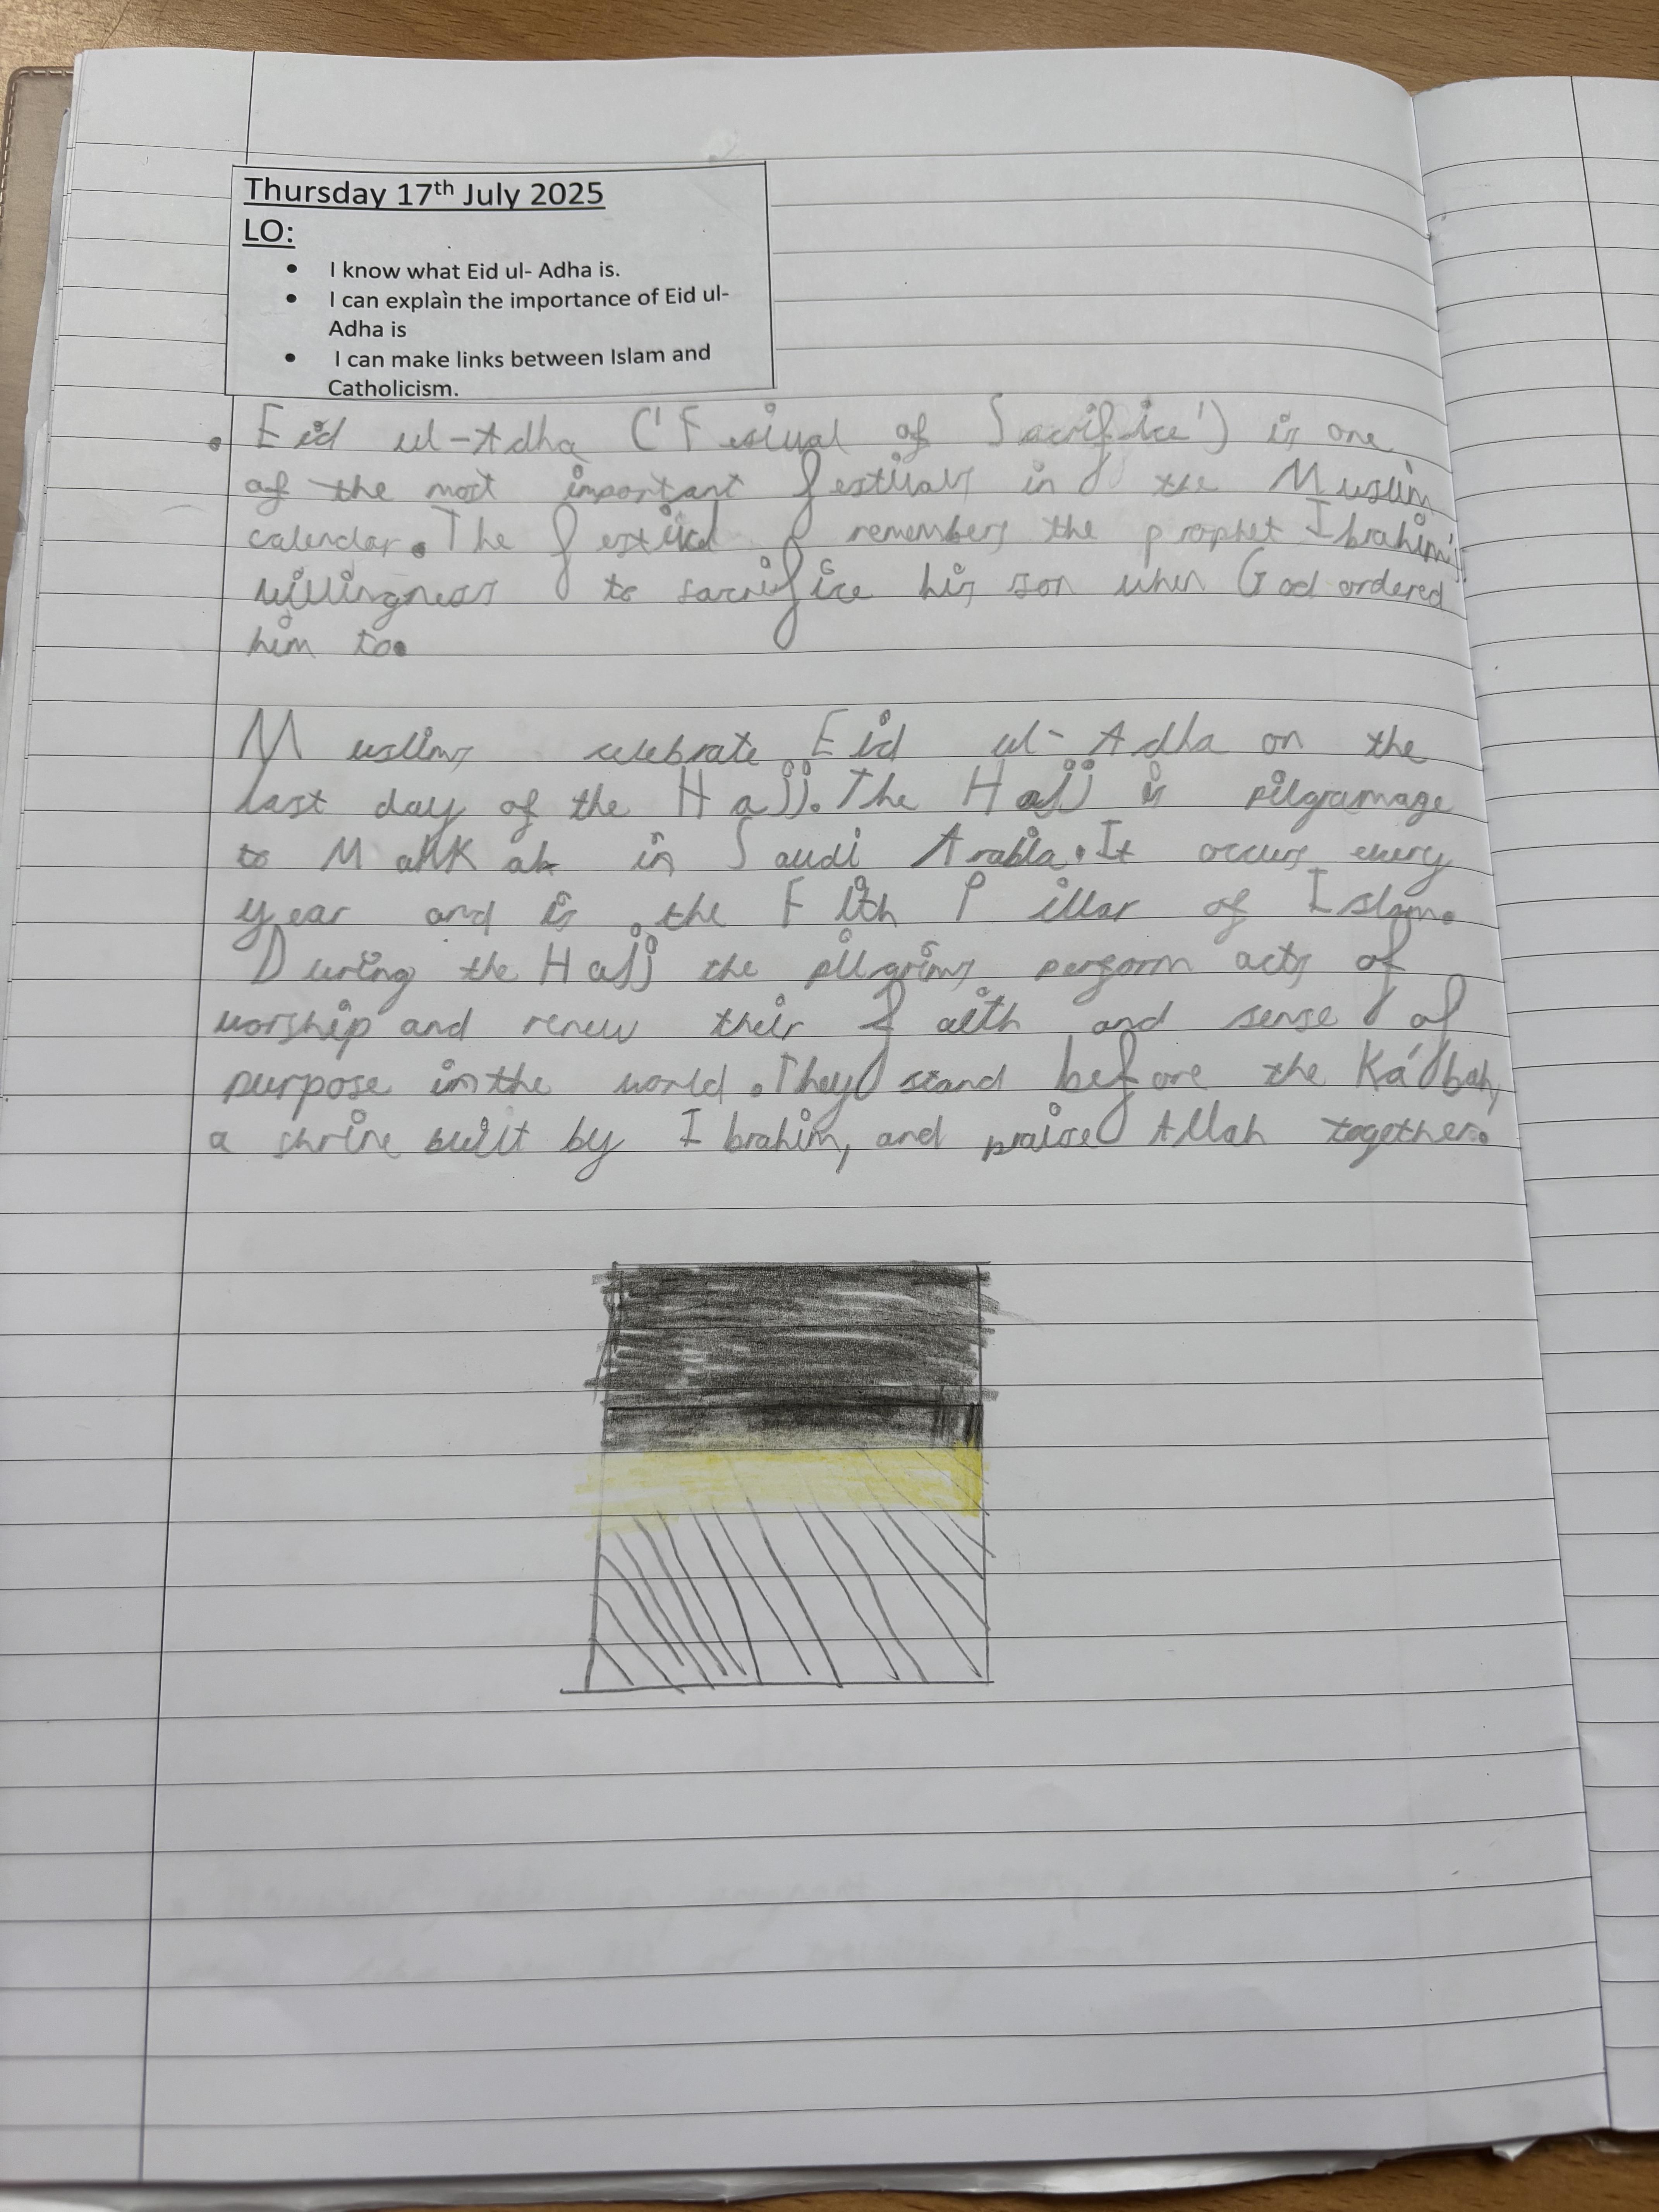 Thursday 17th July 2025
LO:
• I know what Eid ul- Adha is.
• I can explain the importance of Eid ul-
Adha is
• I can make links between Islam and
Catholicism.
• Eid ul-Adha ('Fesival of Sacrifice') is one
of the most important festivals in the Muslim
calendar. The festival remembers the prophet Ibrahim's
willingness to sacrifice his son when God ordered
him to.
Muslims celebrate Eid ul-Adha on the
last day of the Hajj. The Hajj is pilgramage
to in Saudi Arabia. It occurs every
year and is the Fith Pillar of Islam.
During the Hajj the pilgrims perform acts of
worship and renew their faith and sense of
purpose in the world. They stand before the Ka'bah,
a shrine built by Ibrahim, and praise Allah together.